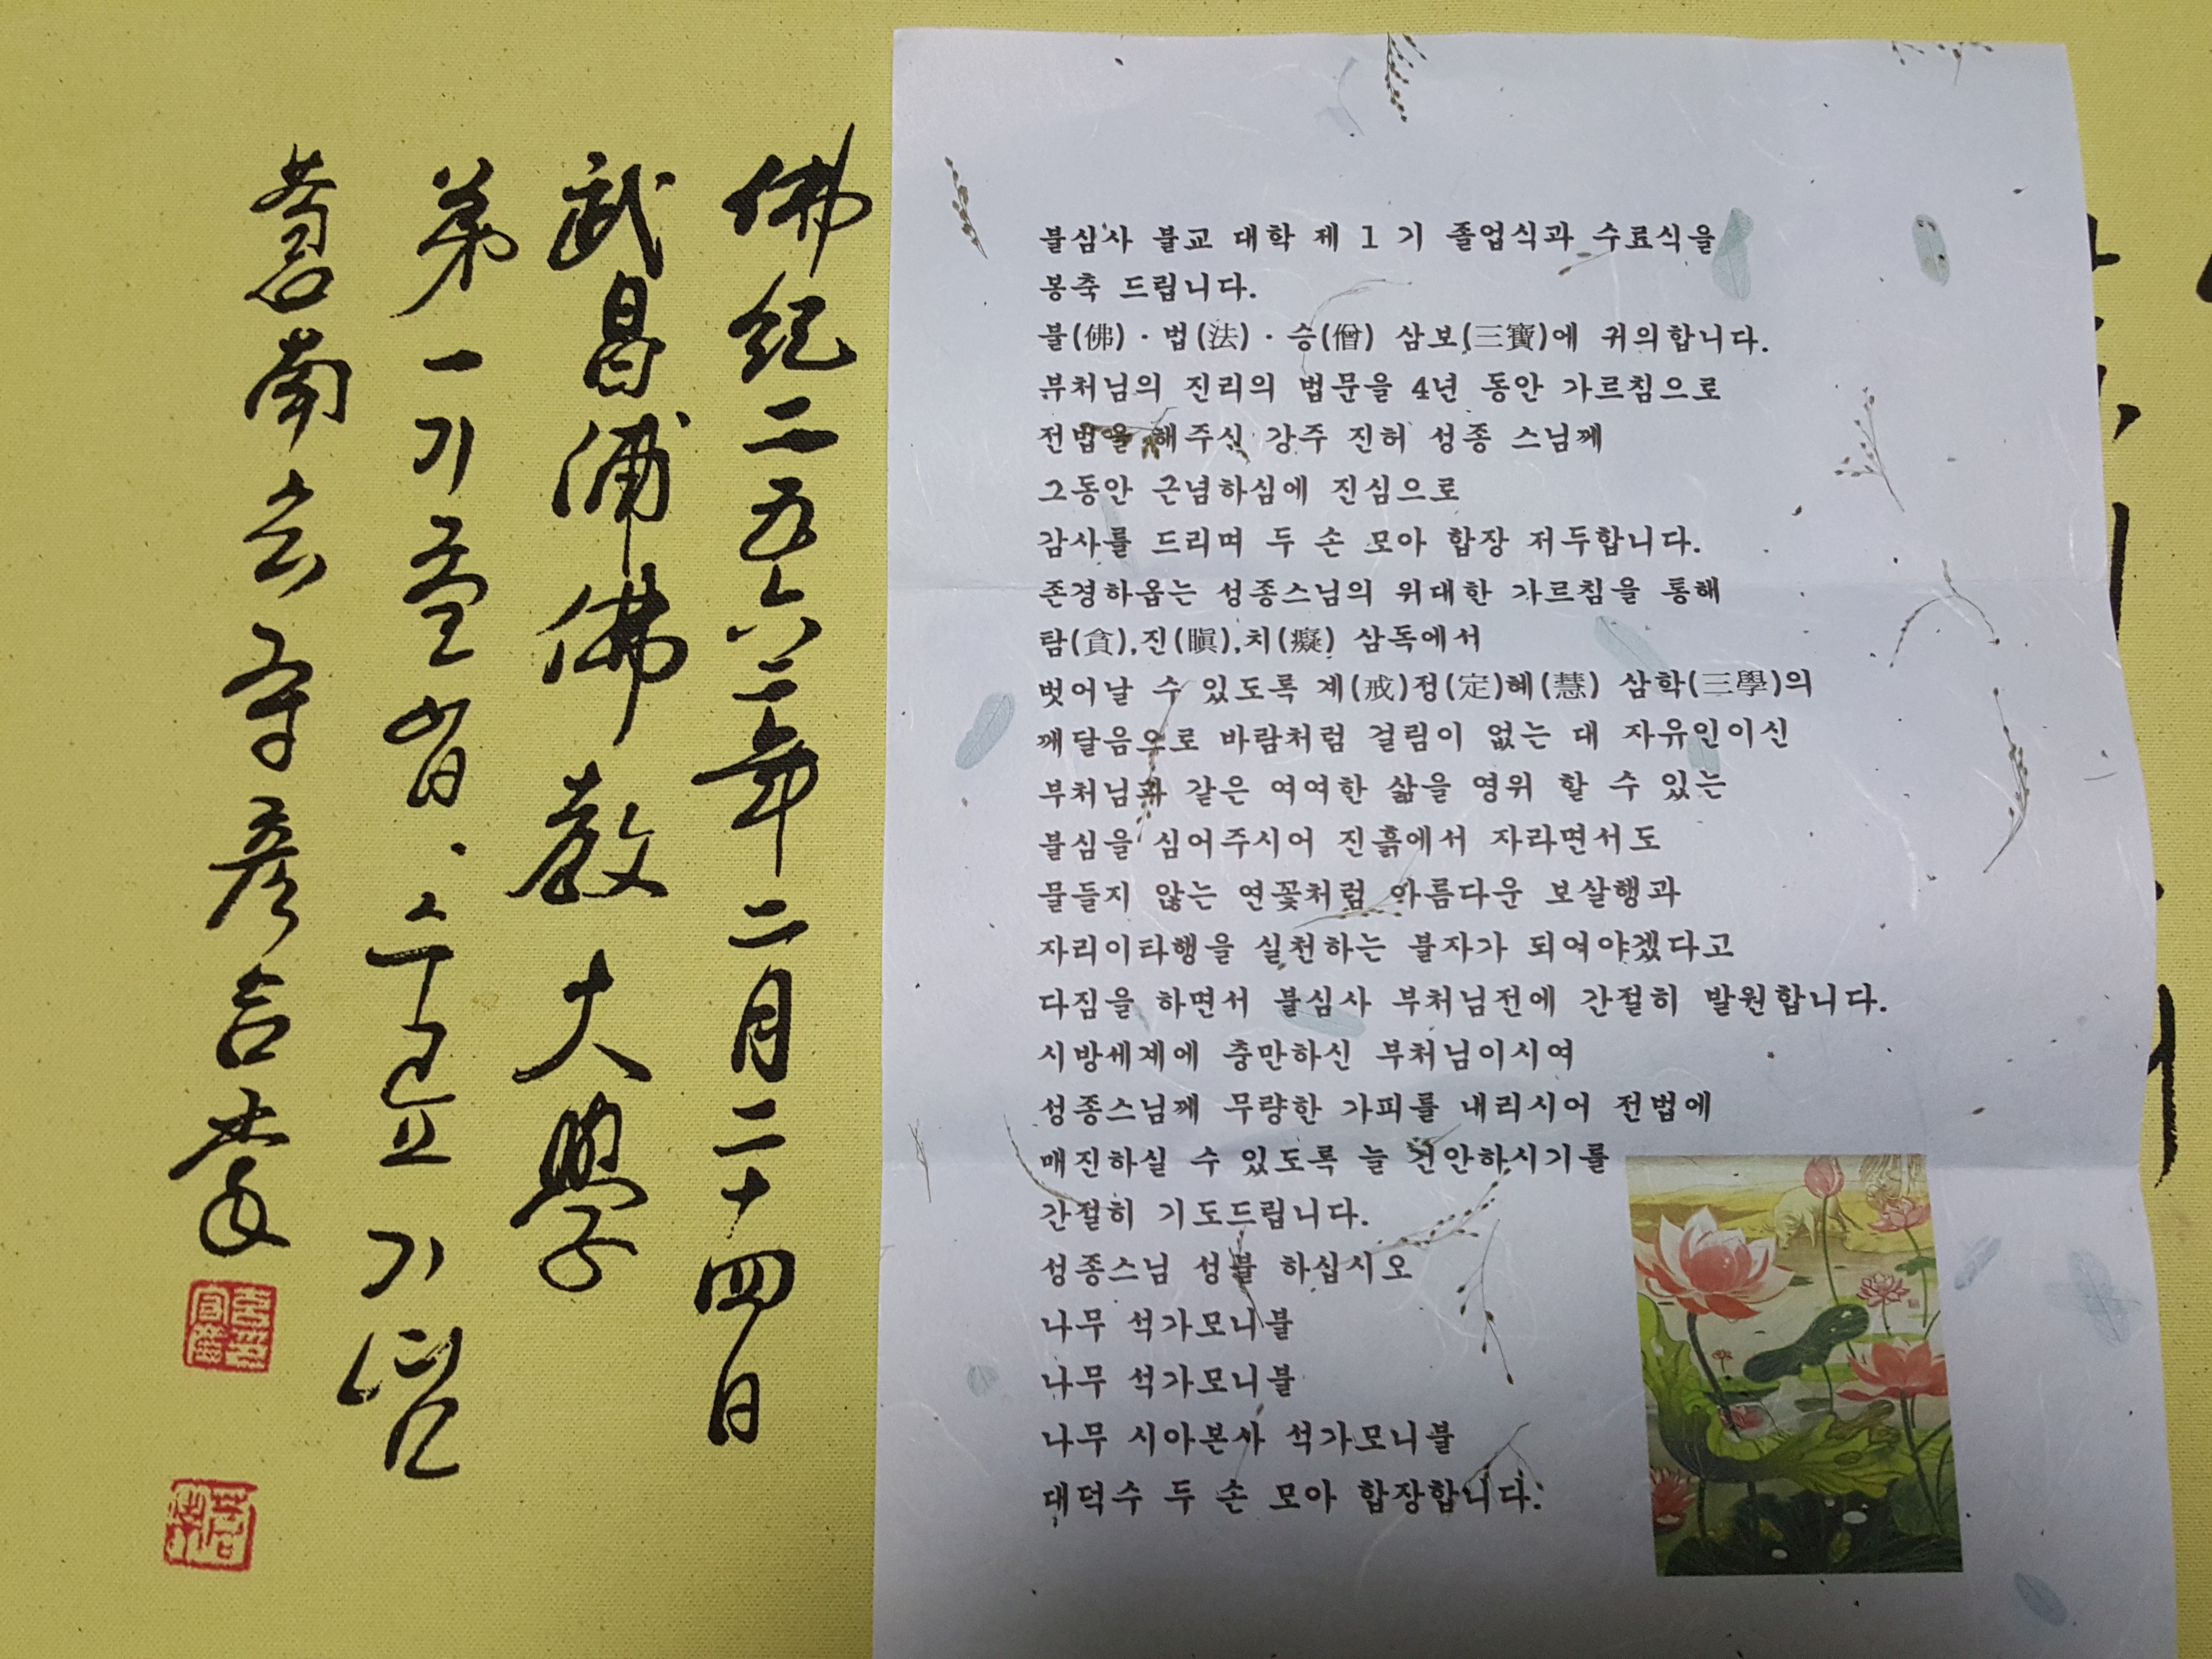 佛紀二五六二年二月二十四日
武昌浦佛敎大學
第一기졸업. 수료기념
불심사 불교 대학 제 1 기 졸업식과 수료식을
봉축 드립니다.
불(佛)·법(法)·승(僧) 삼보(三寶)에 귀의합니다.
뷰처님의 진리의 법문을 4년 동안 가르침으로
전법을 해주신 강주 진허 성종 스님께
그동안 근념하심에 진심으로
감사를 드리며 두 손 모아 합장 저두합니다.
존경하옵는 성종스님의 위대한 가르침을 통해
탐(貪),진(瞋),치(癡) 삼독에서
벗어날 수 있도록 계(戒)정(定)혜(慧) 삼학(三學)의
깨달음으로 바람처럼 걸림이 없는 대 자유인이신
부처님과 같은 여여한 삶을 영위 할 수 있는
불심을 심어주시어 진흙에서 자라면서도
물들지 않는 연꽃처럼 아름다운 보살행과
자리이타행을 실천하는 불자가 되여야겠다고
다짐을 하면서 불심사 부처님전에 간절히 발원합니다.
시방세계에 충만하신 부처님이시여
성종스님께 무량한 가피를 내리시어 전법에
매진하실 수 있도록 늘 건안하시기를
간절히 기도드립니다.
성종스님 성불 하십시오
나무 석가모니불
나무 석가모니불
나무 시아본사 석가모니불
대덕수 두 손 모아 합장합니다.